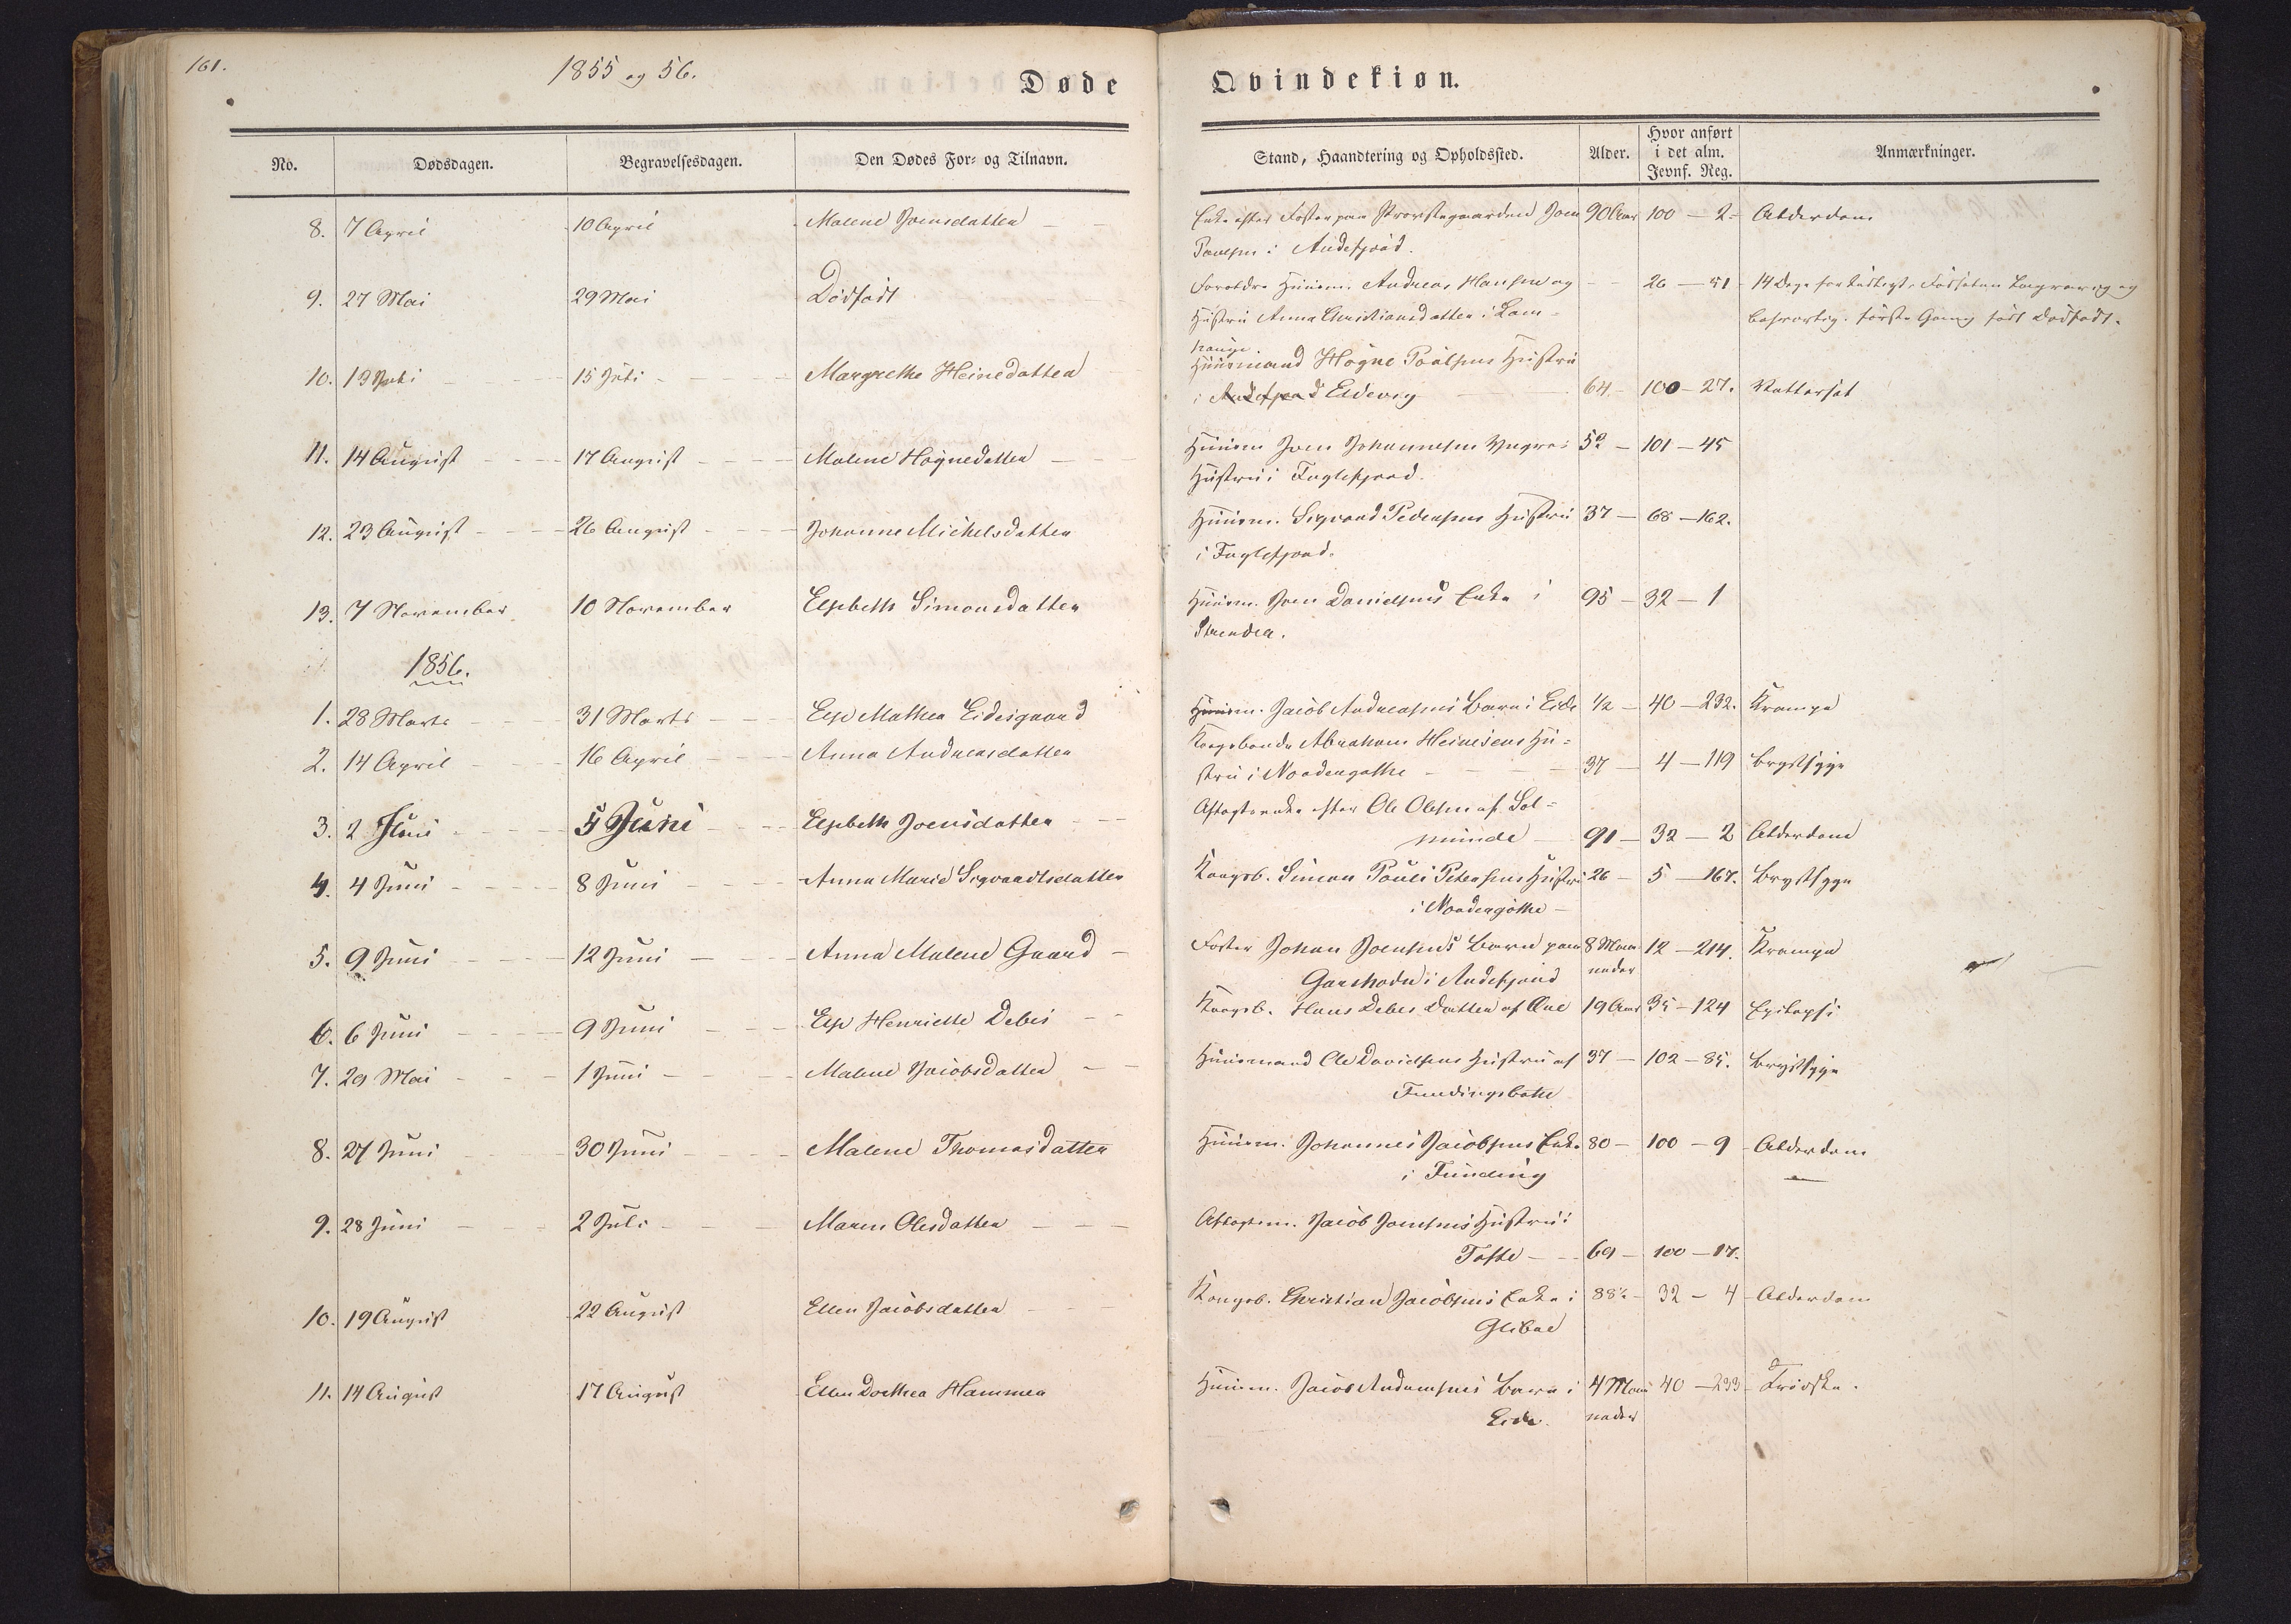 161.
1855 og 56.
Døde
Qvindekiøn.
No.
Dødsdagen.
Begravelsesdagen.
Den Dødes For- og Tilnavn.
Stand, Haandtering og Opholdssted.
Alder.
Hvor anført
i det alm.
Jevnf. Reg.
Anmærkninger.
8. 7 April 10 April Malene Joensdatter Enke efter Fæster paa Provstegaarden Joen 90 Aar 100 - 2 - Alderdom
Poulsen i Andefjord.
9. 27 Mai 29 Mai Dødfødt Forældre Huusm. Andreas Hansen og - 26 - 51
Hustru Anna Christiansdatter i Lam-
10. 13 Juli 15 Juli Margrethe Heinedatter Huusmand Høgne Poulsens Hustru
i Andefjord Eldevig 64 - 100 - 27. Vattersot
11. 14 August 17 August Malene Høgnedatter Huusm Joen Johannesen 101 - 45
Hustru i Fuglefjord.
12. 23 August 26 August Johanne Michelsdatter Huusm. Sigvard Pedersens Hustru 37 - 68 - 162.
i Fuglefjord.
13. 7 November 10 November Elsebeth Simonsdatter Huusm. Joen Danielsens Enke i 95 - 32 - 1
Strender.
1856.
1. 28 Marts 31 Marts Else Mathea Eidisgaard Huusm. Jacob Andreasens Barn i Eide 1/2 - 40 - 232. Krampe
2. 14 April 16 April Anna Andreasdatter Kongsbonde Abraham Heinesens Hu-
stru i Nordregøthe 37 - 4 - 119 Brystsyge
3. 2 Juni 5 Juni Elsebeth Joensdatter Aftægtsenke efter Ole Olesen af Sol-
munde 91 - 32 - 2 Alderdom
4. 4 Juni 8 Juni Anna Marie Sigvardtsdatter Kongsb. Simon Pouli Petersens Hustru 26 - 5 - 167. Brystsyge
i Nordregøthe -
5. 9 Juni 12 Juni Anna Malene Gaard Fæster Johan Joensens Barn paa 8 Maa- 12 - 214. Krampe
i Andefjord neder
6. 6 Juni 9 Juni Else Henriette Debes Kongsb. Hans Debes Datter af Øre 19 Aar 35 - 124 Epilepsi
7. 29 Mai 1 Juni Malene Jacobsdatter Huusmand Ole Davidsens Hustru af 37 - 102 - 85. Brystsyge
Fundingsbotn
8. 27 Juni 30 Juni Malene Thomasdatter Huusm. Johannes Jacobsens Enke 80 - 100 - 9 - Alderdom
i Funding
9. 28 Juni 2 Juli Maren Olesdatter Aftægtsm. Jacob Joensens Hustru i
Tofte 69 - 100 - 17.
10. 19 August 22 August Ellen Jacobsdatter Kongsb. Christian Jacobsens Enke i 88 1/2 - 32 - 4 - Alderdom
Glibre
11. 14 August 17 August Ellen Dorthea Hammer Huusm. Jacob Andreasens Barn i 4 Maa- 40 - 233 - Trødske.
Eide. neder